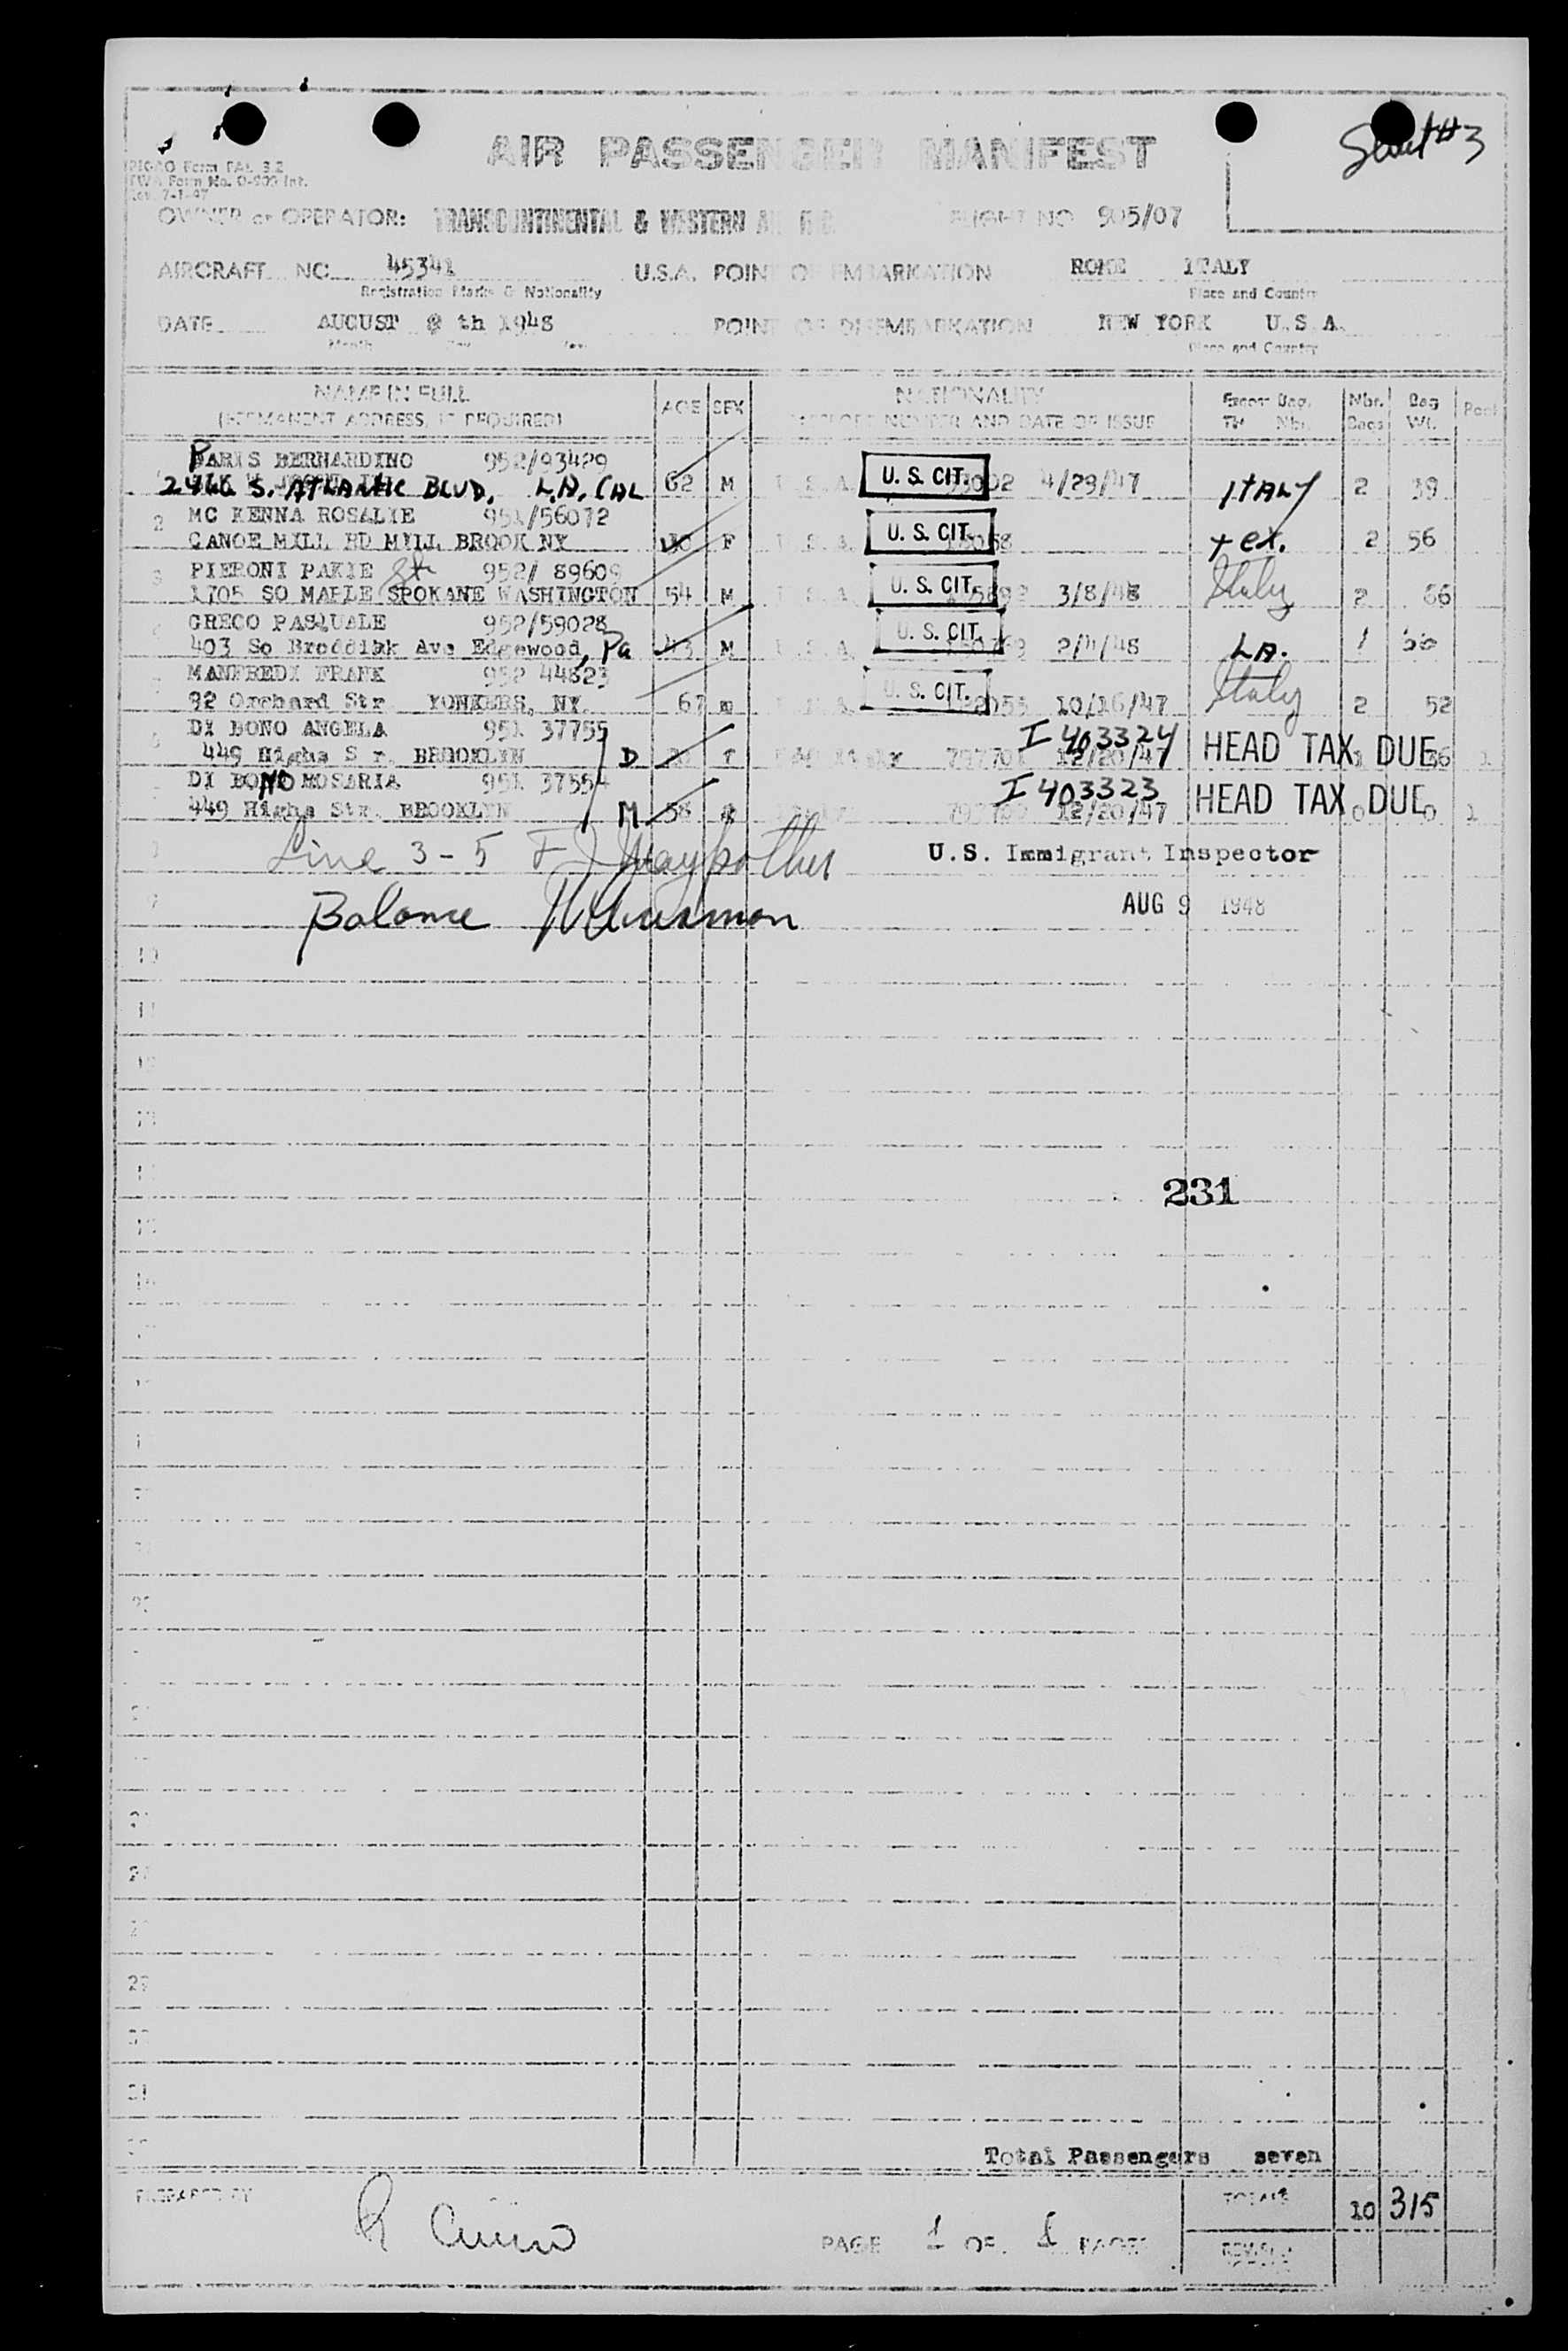 Sheet #3
AIR PASSENGER MANIFEST
PICAO Form PAL 3.2
TWA Form No. O-909 Int.
Rev. 7-1-47
OWNER or OPERATOR: TRANSCONTINENTAL & WESTERN AIR FLIGHT NO 905/07
AIRCRAFT NO. 45341 U.S.A. POINT OF EMBARKATION ROME ITALY
Registration Marks & Nationality Place and Country
DATE AUGUST 8 th 1948 POINT OF DISEMBARKATION NEW YORK U.S.A.
Month Day Year Place and Country
NAME IN FULL AGE SEX NATIONALITY Excess Bag. Nbr. Bag
(PERMANENT ADDRESS, IF REQUIRED) PASSPORT NUMBER AND DATE OF ISSUE Tkt Nbr. Bags Wt.
PARIS BERNARDINO 952/93429
2466 S. ATLANTIC BLVD. L.A. CAL 62 M U.S.A. U. S. CIT. 4/29/47 ITALY 2 39
2 MC KENNA ROSALIE 951/56072
CANOE MILL RD MILL BROOK NY 30 F U.S.A. U. S. CIT. + ex. 2 56
3 PIERONI PAKIE 952/ 89609
1705 SO MAPLE St SPOKANE WASHINGTON 54 M U.S.A. U. S. CIT. 3/8/48 Italy 2 66
GRECO PASQUALE 952/59028
403 So Broddiak Ave Edgewood, Pa 43 M U.S.A. U. S. CIT. 2/4/48 LA. 1
MANFREDI FRANK 952 44823
92 Orchard Str YONKERS, NY. 67 m U. S. CIT. 10/16/47 Italy 2 52
DI BONO ANGELA 951 37755 I 403324
449 Highs S r. BROOKLYN D 12/20/47 HEAD TAX DUE 1
DI BONO ROSARIA 951 37554 I 403323
449 Highs Str. BROOKLYN M 58 12/20/47 HEAD TAX DUE 0 0 1
Line 3-5
U.S. Immigrant Inspector
Balance
AUG 9 1948
10
11
231
29
Total Passengers seven
PREPARED BY TOTALS 10 315
PAGE 1 OF 1 PAGES